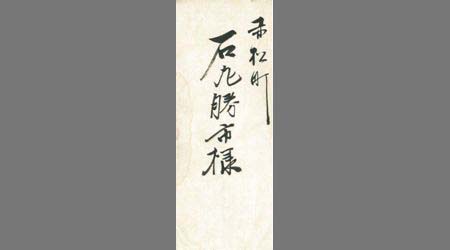 赤松町
石丸勝市様